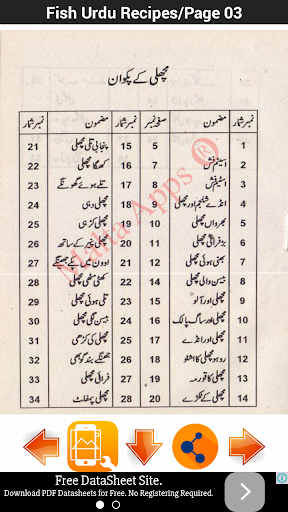 Fish Urdu Recipes/Page 03
مچھلی کے پکوان
نمبر شمار مضمون صفحہ نمبر نمبر شمار مضمون نمبر شمار
1 اسٹیمڈ فش 5 15 پنجابی تلی مچھلی 21
2 اسٹیم فش 7 16 کھگا مچھلی 22
3 8 17 تلے ہوئے گھونگے 23
4 انڈے شلجم اور مچھلی 9 18 مچھلی دہی 24
5 بھرواں مچھلی 10 19 مچھلی کڑہی 25
6 مچھلی 11 20 مچھلی پنیر کے ساتھ 26
7 بھنی ہوئی مچھلی 12 21 اوون میں پکے جھینگے 27
8 بیسن والی مچھلی 13 22 کھٹی مٹھی مچھلی 28
9 مچھلی اور آلو 14 23 تلی ہوئی مچھلی 29
10 مچھلی اور ساگ پالک 16 24 بیسن لگی مچھلی 30
11 مچھلی اور انڈے 17 25 مچھلی کی کڑھی 31
12 روہو مچھلی کا اسٹو 18 26 جھینگے بند گوبھی 32
13 مچھلی کا قورمہ 19 27 فرائی مچھلی 33
14 مچھلی کے ٹکڑے 20 28 مچھلی 34
Malta Apps ®
Free DataSheet Site.
Download PDF Datasheets for Free. No Registering Required.